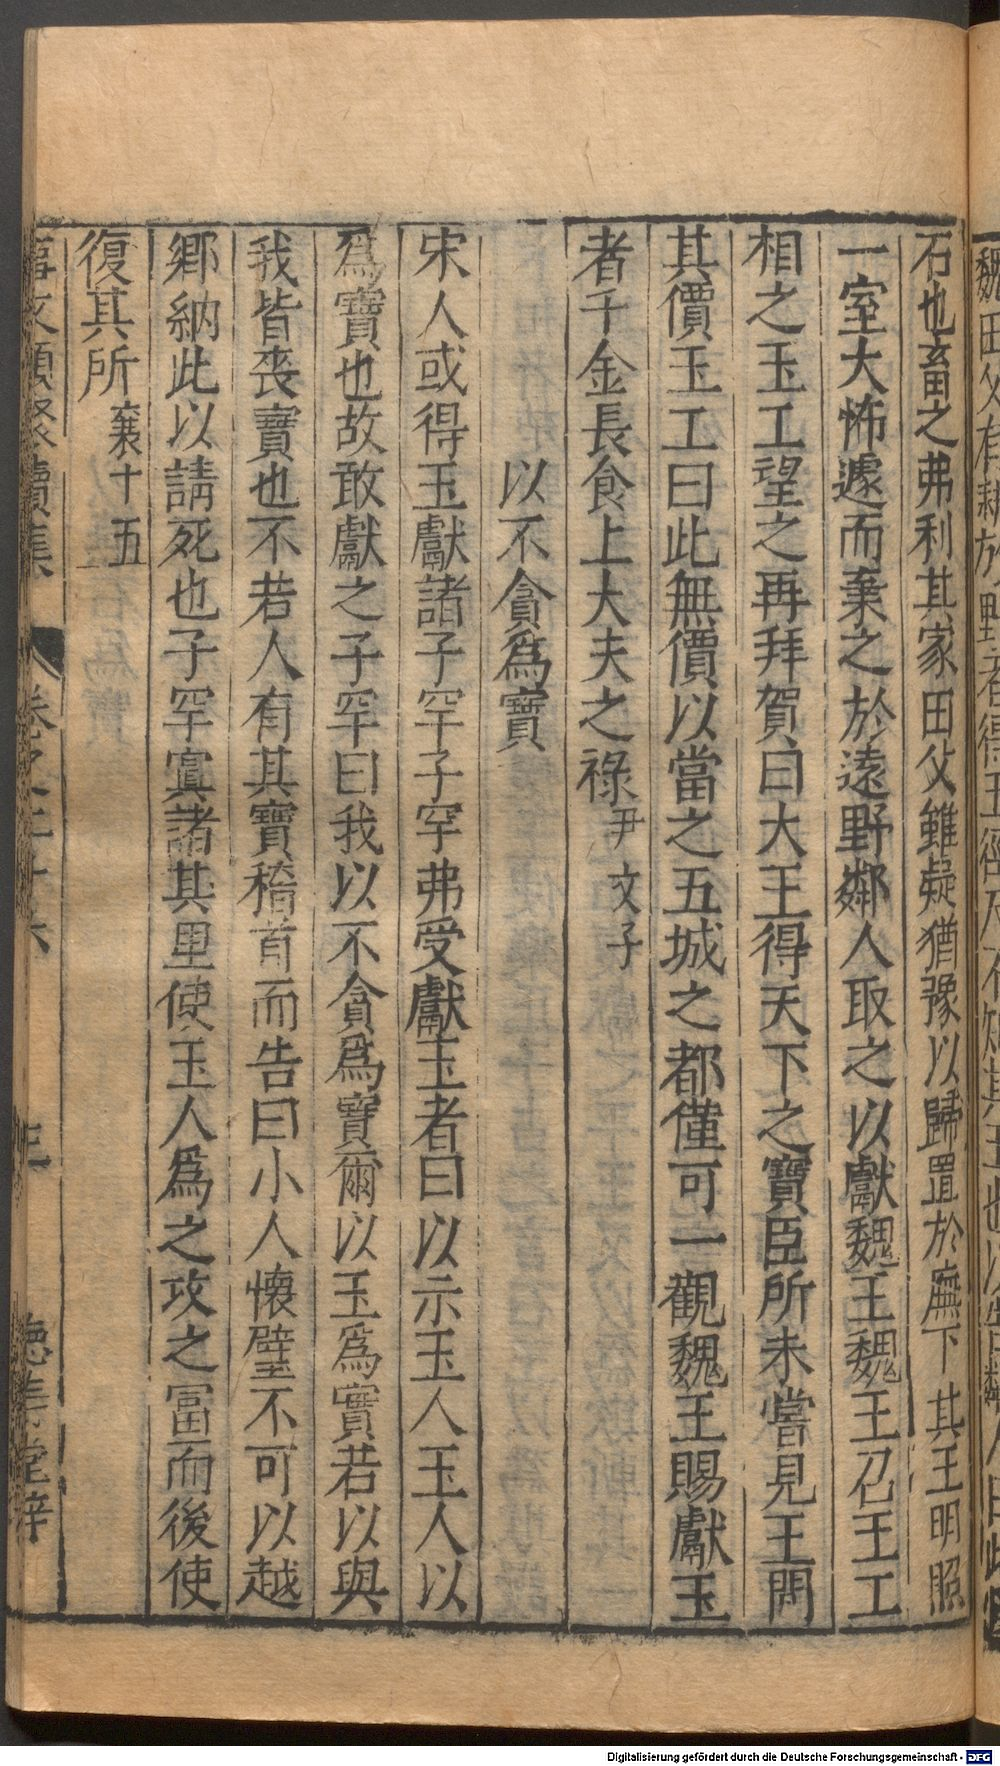 石也畜之弗利其家田父雖疑猶豫以歸置於廡下其玉明照
一室大怖遽而棄之於遠野鄰人取之以獻魏王魏王召玉工
相之玉工望之再拜賀曰大王得天下之寶臣所未嘗見王問
其價玉工曰此無價以當之五城之都僅可一觀魏王賜獻玉
者千金長食上大夫之祿尹文子
以不貪爲寶
宋人或得玉獻諸子罕子罕弗受獻玉者曰以示玉人玉人以
爲寶也故敢獻之子罕曰我以不貪爲寶爾以玉爲寶若以與
我皆喪寶也不若人有其寶稽首而告曰小人懷璧不可以越
鄉納此以請死也子罕寘諸其里使玉人爲之攻之富而後使
復其所襄十五
事文類聚續集 卷之二十六 三 德壽堂梓
Digitalisierung gefördert durch die Deutsche Forschungsgemeinschaft - DFG